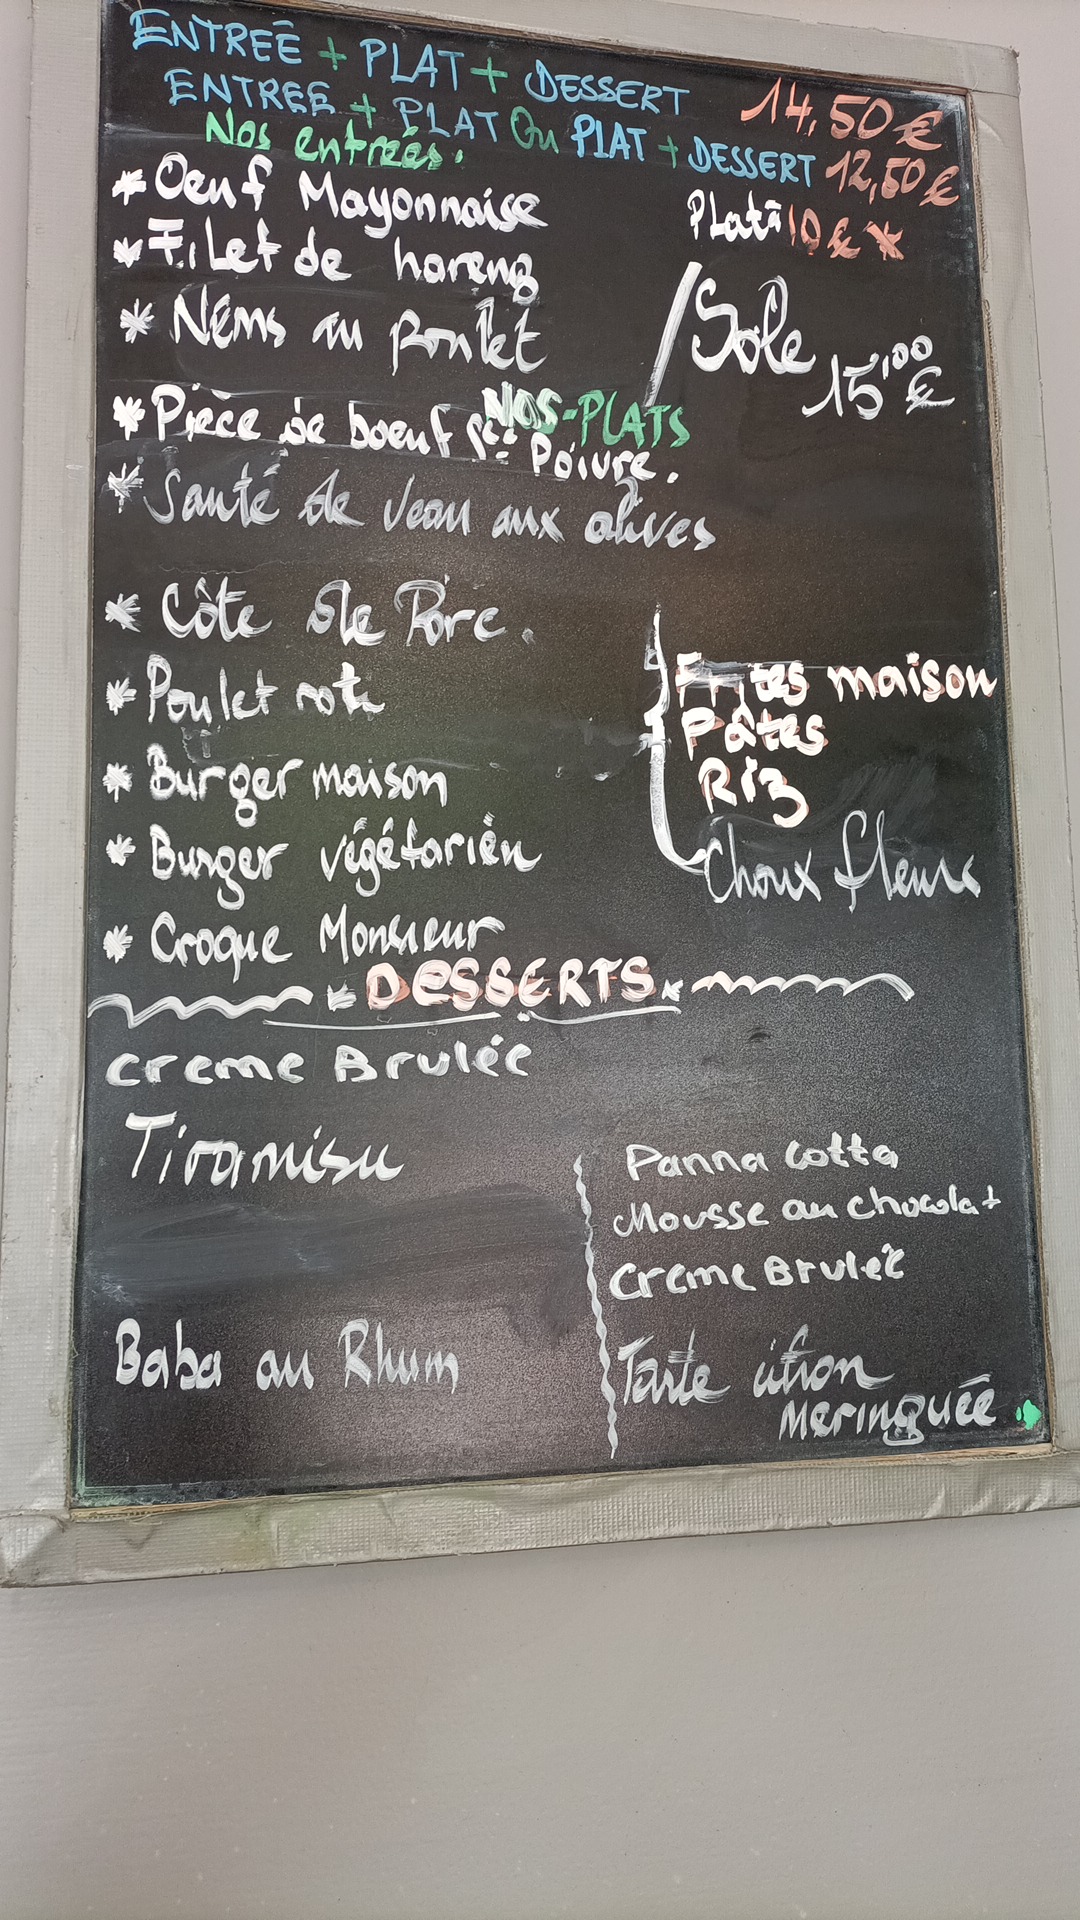 ENTREÉ + PLAT + DESSERT 14,50 €
ENTREE + PLAT Ou PLAT + DESSERT 12,50 €
Nos entreés:
* Oeuf Mayonnaise
Plat: 10 € *
* Filet de hareng
* Nems au Poulet
/ Sole 15,00 €
NOS-PLATS
* Pièce de boeuf Sce Poivre.
* Sauté de Veau aux olives
* Côte de Porc.
* Poulet roti
Frites maison
Pâtes
Riz
Choux fleurs
* Burger maison
* Burger végétarien
* Croque Monsieur
* DESSERTS *
creme Brulée
Tiramisu
Baba au Rhum
Panna cotta
Mousse au chocolat
creme Brulée
Tarte citron
meringuée